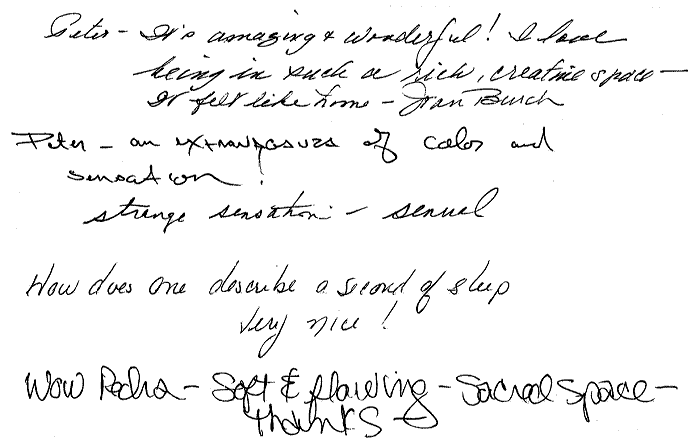 Peter - It's amazing & wonderful! I love
being in such a rich, creative space -
It felt like home - Jean Burch
Peter - an extravagance of color and
sensation!
strange sensation - sensual
How does one describe a second of sleep
Very nice!
Wow Pedra - Soft & flowing - Sacred Space -
thanks